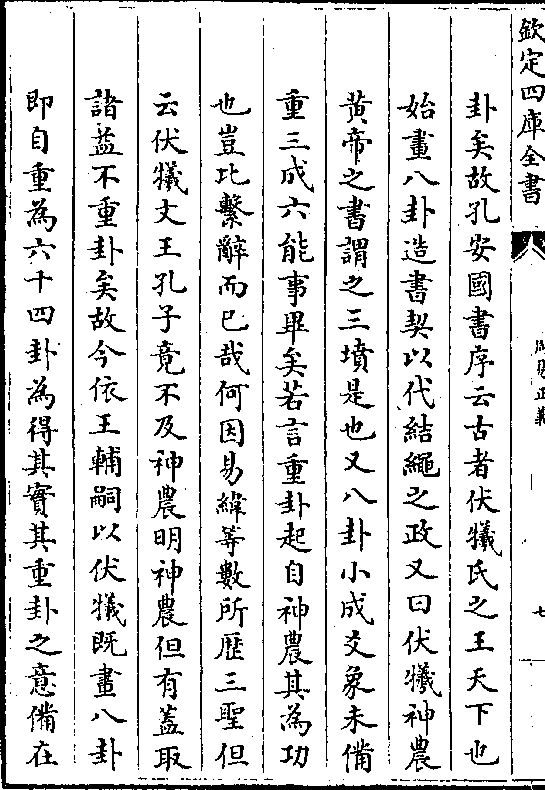 欽定四庫全書
周易正義
七
卦矣故孔安國書序云古者伏犧氏之王天下也
始畫八卦造書契以代結繩之政又曰伏犧神農
黄帝之書謂之三墳是也又八卦小成爻象未備
重三成六能事畢矣若言重卦起自神農其為功
也豈比繫辭而已哉何因易緯等數所歴三聖但
云伏犧文王孔子竟不及神農明神農但有蓋取
諸益不重卦矣故今依王輔嗣以伏犧既畫八卦
即自重為六十四卦為得其實其重卦之意備在